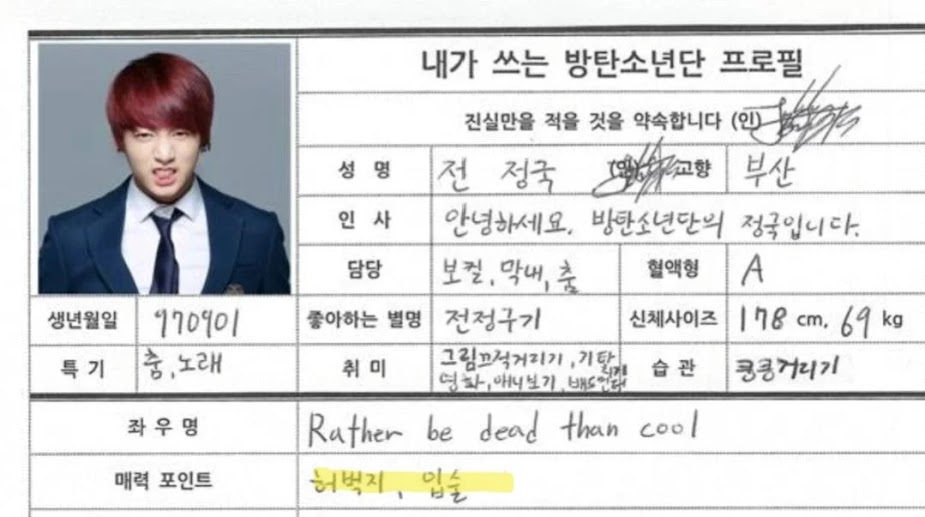 내가 쓰는 방탄소년단 프로필
진실만을 적을 것을 약속합니다 (인)
성 명 전 정국 (인) 고향 부산
인 사 안녕하세요. 방탄소년단의 정국입니다.
담당 보컬, 막내, 춤 혈액형 A
생년월일 970901 좋아하는 별명 전정구기 신체사이즈 178 cm, 69 kg
특 기 춤, 노래 취 미 그림끄적거리기, 기탕 습 관 킁킁거리기
영화, 애니보기,
좌 우 명 Rather be dead than cool
매력 포인트 허벅지, 입술